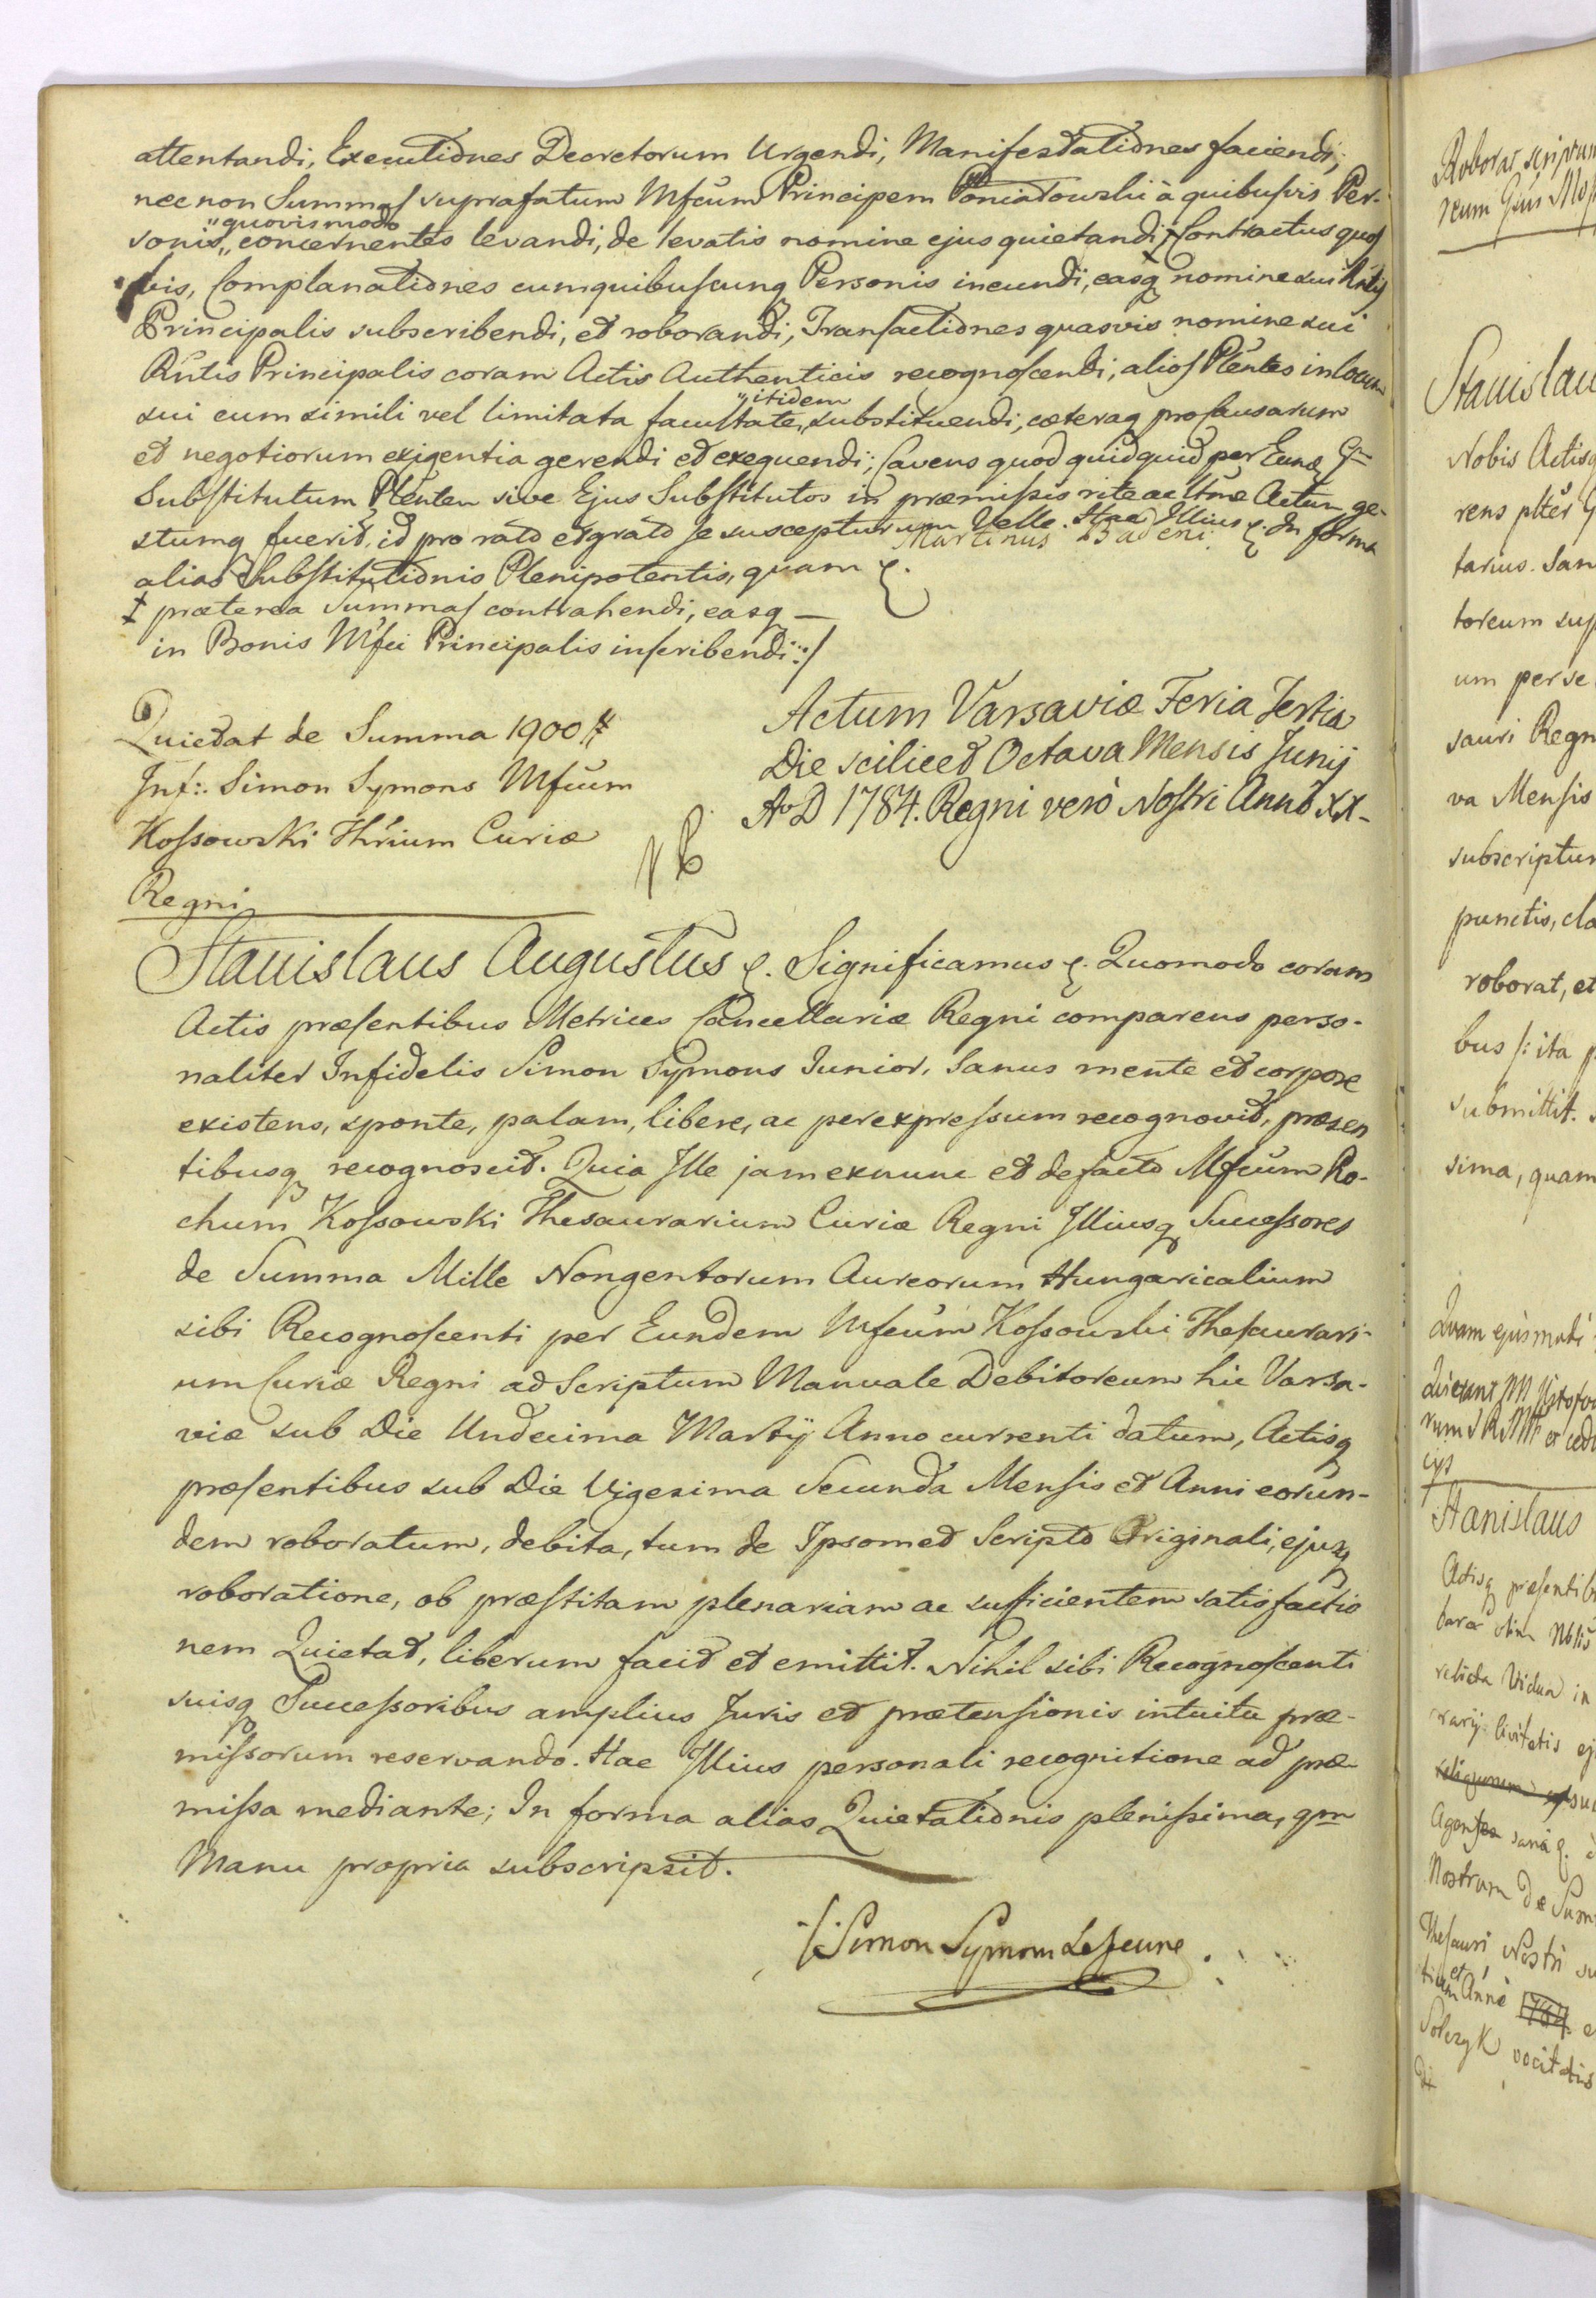 attentandi, Executiones Decretorum Urgendi, Manifestationes faciendi,
nec non Summas suprafatum Mfcum Principem Poniatowski à quibusvis Per-
sonis „quovismodo„ concernentes levandi, de levatis nomine ejus quietandi, ‡ Contractus quos
vis, Complanationes cum quibuscunq Personis ineundi, easq nomine sui Rntis
Principalis subscribendi, et roborandi, Transactiones quasvis nomine sui
Rntis Principalis coram Actis Authenticis recognoscendi, alios Plentes in locum
sui cum simili vel limitata facultate „itidem substituendi, cæteraq pro causarum
et negotiorum exigentia gerendi et exequendi; Cavens quod quidquid per Eunđ Gm
Substitutum Plenten sive Ejus Substitutos in præmissis rite ac ltme Actum ge-
stumq fuerit, id pro rato et grato se suscepturum Velle. Hac Illius &. In forma
Martinus Badeni
alias Substitutionis Plenipotentis, quam &.
‡ præterea Summas contrahendi, easq
in Bonis Mfci Principalis inscribendi :/
Quietat de Summa 1900 #
Inf: Simon Symons Mfcum
Kossowski Thrium Curiæ
Regni
Actum Varsaviæ Feria Tertia
Die scilicet Octava Mensis Junij
Ao D 1784. Regni verò Nostri Anno XX-
Stanislaus Augustus &. Significamus &. Quomodo coram
Actis præsentibus Metrices Cancellariæ Regni comparens perso-
naliter Infidelis Simon Symons Junior, Sanus mente et corpore
existens, sponte, palam, libere, ac per expressum recognovit, præsen
tibusq recognoscit. Quia Ille jam ex nunc et de facto Mfcum Ro-
chum Kossowski Thesaurarium Curiæ Regni Illiusq Successores
de Summa Mille Nongentorum Aureorum Hungaricalium
sibi Recognoscenti per Eundem Mfcum Kossowski Thesaurari-
um Curiæ Regni ad Scriptum Manuale Debitoreum hic Varsa-
viæ sub Die Undecima Martij Anno currenti datum, Actisq
præsentibus sub Die Vigesima Secunda Mensis et Anni eorun-
dem roboratum, debita, tum de Ipsomet Scripto Originali, ejusq
roboratione, ob præstitam plenariam ac sufficientem satisfactio
nem Quietat, liberum facit et emittit. Nihil sibi Recognoscenti
suisq Successoribus amplius Juris et prætensionis intuitu præ-
missorum reservando. Hac Illius personali recognitione ad præ-
missa mediante; In forma alias Quietationis plenissima, qm
Manu propria subscripsit.
Simon Symons Le Jeune
Roboras scriptum
reum Gsus
Stanislau
Nobis Actisq
rens plter G
tarius. San
toreum sup
um per se
sauri Regn
va Mensis
subscriptum
punctis, cla
roborat, et
bus /: ita p
submittit.
sima, quam
Quam ejusmodi
Stanislaus
Actisq præsentib
relicta Vidua in
rarij Civitatis ej
Nostram de Sum
Thesauri Nostri su
et Anno 1784 e
Solczyk vocitatis
di